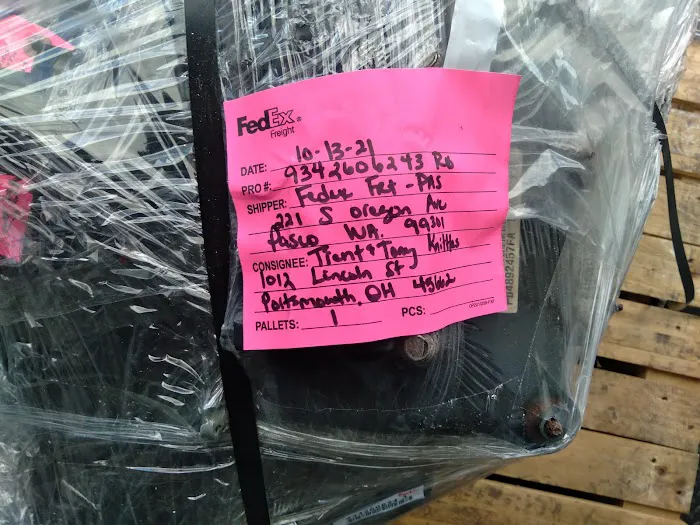 FedEx®
Freight
DATE: 10-13-21
PRO #: 9342606243 R6
SHIPPER: Fedex Frt - PAS
221 S oregon Ave
Pasco WA. 99301
CONSIGNEE: Trent & Tony Kittles
1012 Lincoln St
Portsmouth, OH 45662
PALLETS: 1 PCS: